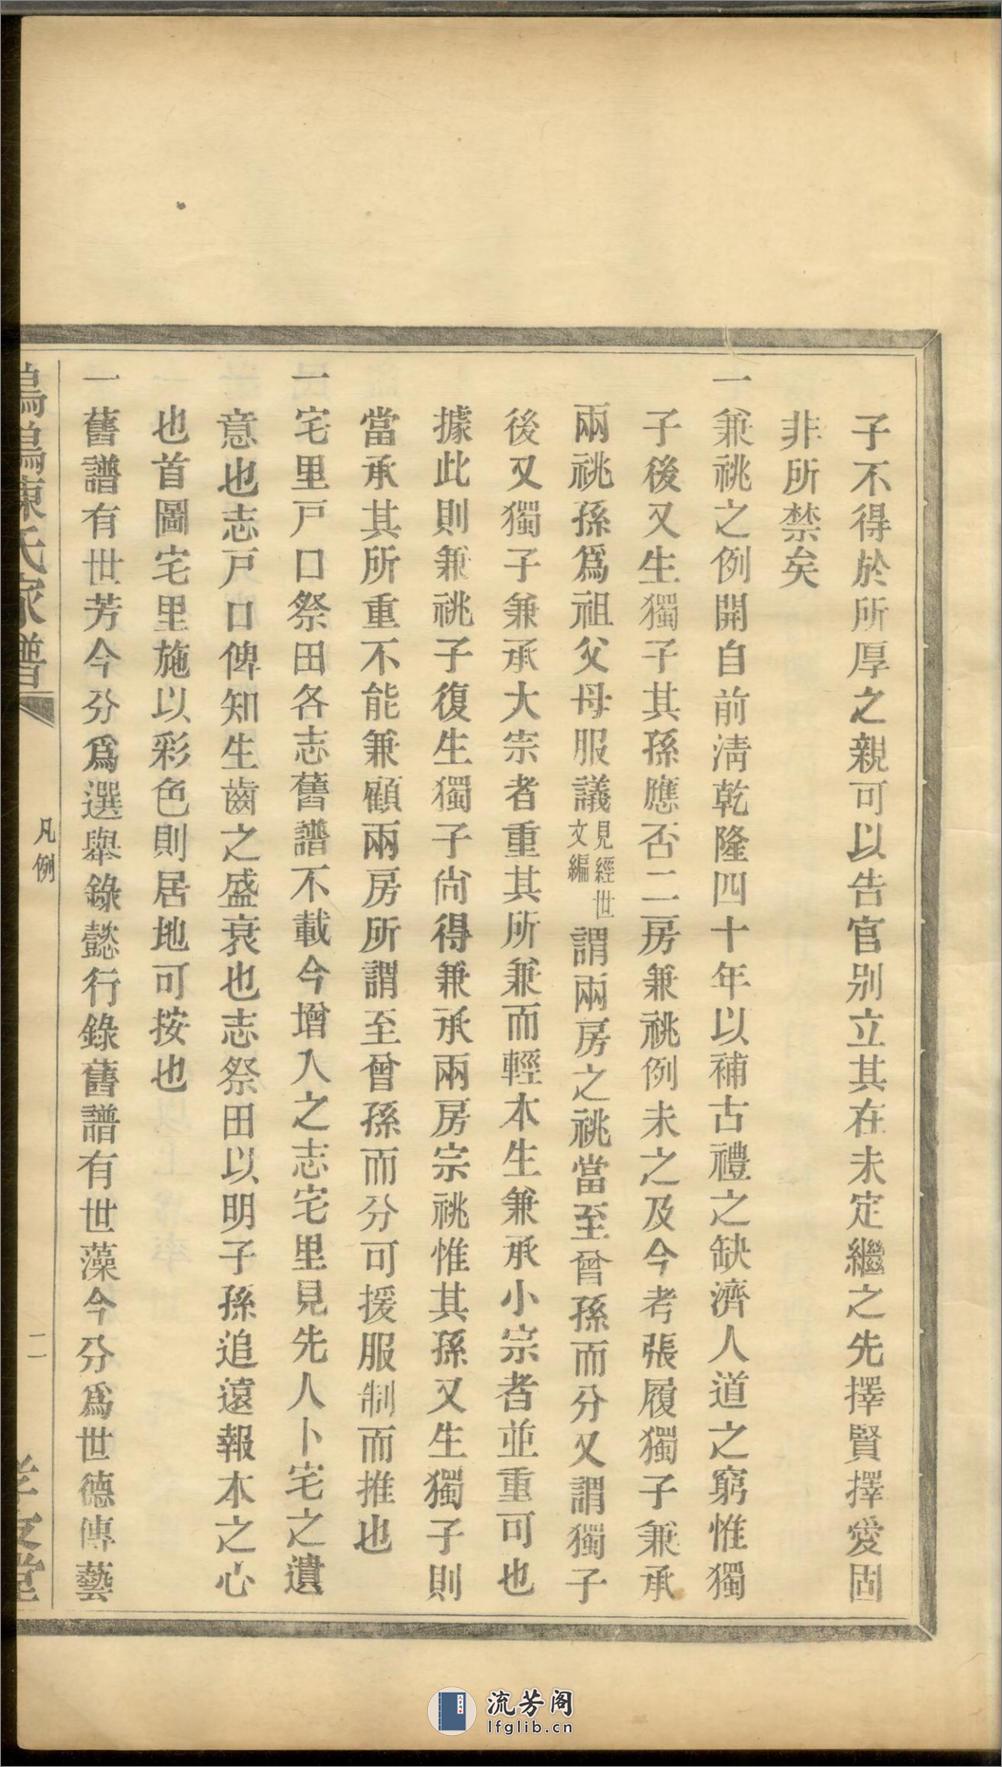 子不得於所厚之親可以告官别立其在未定繼之先擇賢擇愛固
非所禁矣
一兼祧之例開自前淸乾隆四十年以補古禮之缺濟人道之窮惟獨
子後又生獨子其孫應否二房兼祧例未之及今考張履獨子兼承
兩祧孫爲祖父母服議見經世文編謂兩房之祧當至曾孫而分又謂獨子
後又獨子兼承大宗者重其所兼而輕本生兼承小宗者並重可也
據此則兼祧子復生獨子尙得兼承兩房宗祧惟其孫又生獨子則
當承其所重不能兼顧兩房所謂至曾孫而分可援服制而推也
一宅里戸口祭田各志舊譜不載今增入之志宅里見先人卜宅之遺
意也志戸口俾知生齒之盛衰也志祭田以明子孫追遠報本之心
也首圖宅里施以彩色則居地可按也
一舊譜有世芳今分爲選舉錄懿行錄舊譜有世藻今分爲世德傳藝
陳氏家譜
凡例
二
堂
流芳阁
lfglib.cn